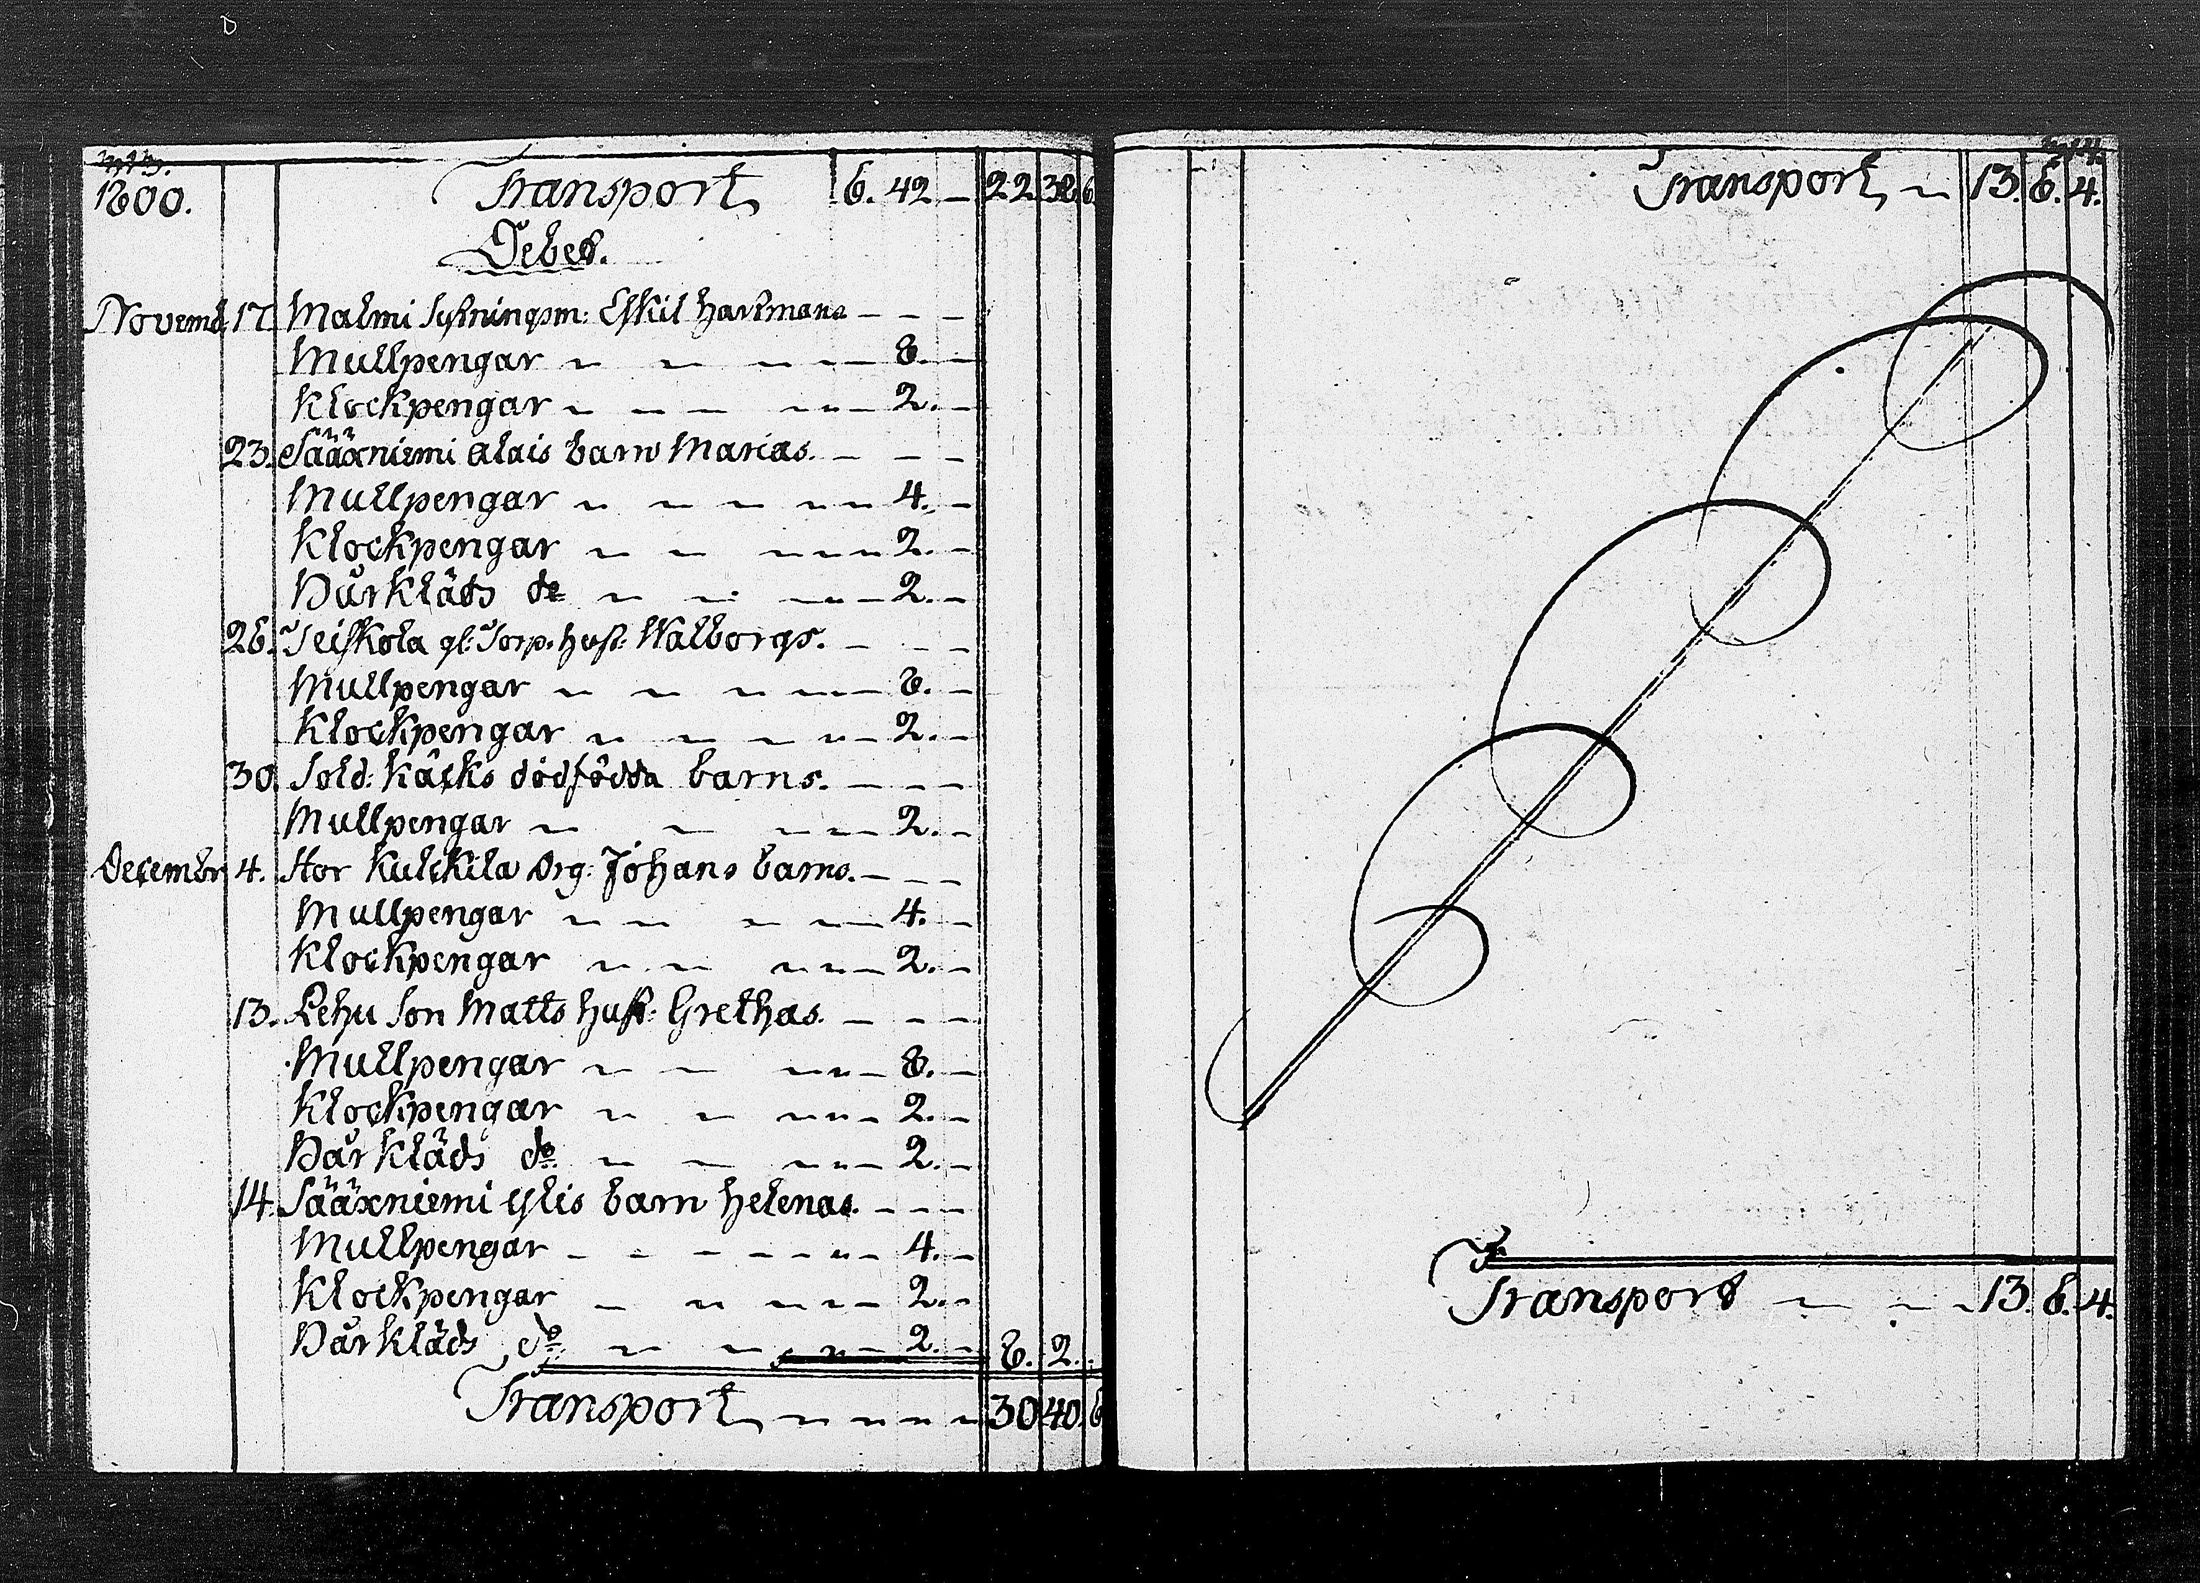 1800. Transport 6. 42 — 22 38 6
Debet.
Novemb 17. Malmi Sytningsm: Eskil Hartmans — — —
Mullpengar 8. —
Klockpengar 2. —
23. Sääxniemi Alais barn Marias. — — —
Mullpengar 4. —
Klockpengar 2. —
Bårkläds do 2. —
26. Teiskola gl: Torp. hust: Walborgs. — — —
Mullpengar 8. —
Klockpengar 2. —
30. Sold: Käcks dödfödda barns. — — —
Mullpengar 2. —
Decembr 4. Stor Kulckila Drg: Johans barns. — — —
Mullpengar 4. —
Klockpengar 2. —
13. Lehu Son Matts Hust: Grethas. — — —
Mullpengar 8. —
Klockpengar 2. —
Bårkläds do 2. —
14. Sääxniemi Ylis barn Helenas. — — —
Mullpengar 4. —
Klockpengar 2. —
Bårkläds do 2. — 8. 2.
Transport 30 40. 6
Transport 13. 6. 4.
Transport 13. 6. 4.